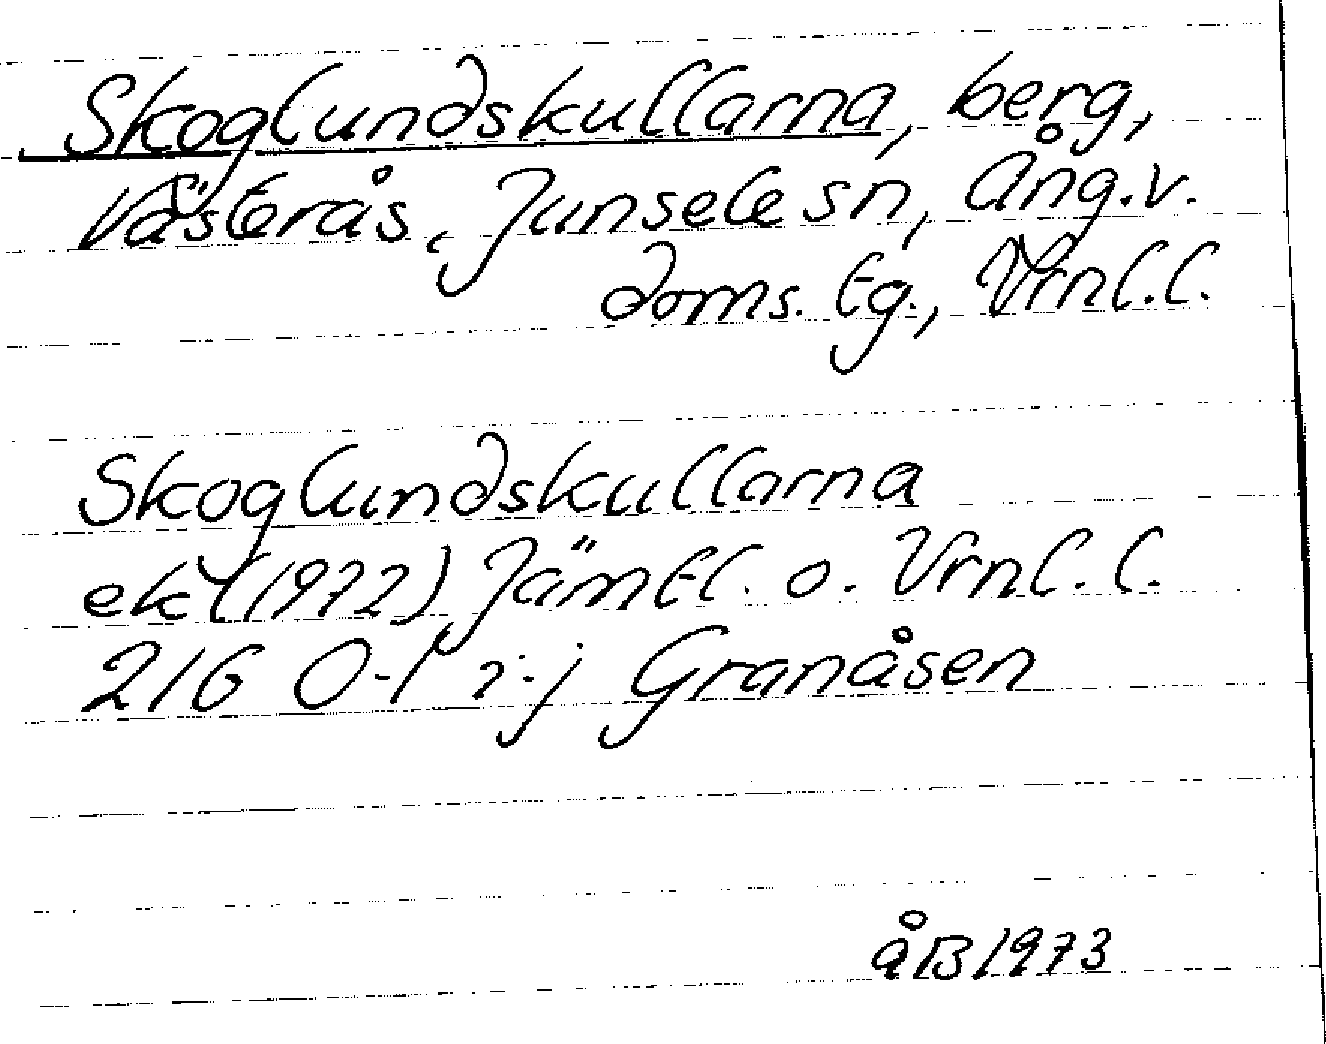 Skoglundskullarna, berg,
Västerås, Junsele sn, Ång.v.
doms. tg., Vrnl.l.
Skoglundskullarna
ek (1972) Jämtl. o. Vrnl.l.
216 0-1 i-j Granåsen
åB 1973